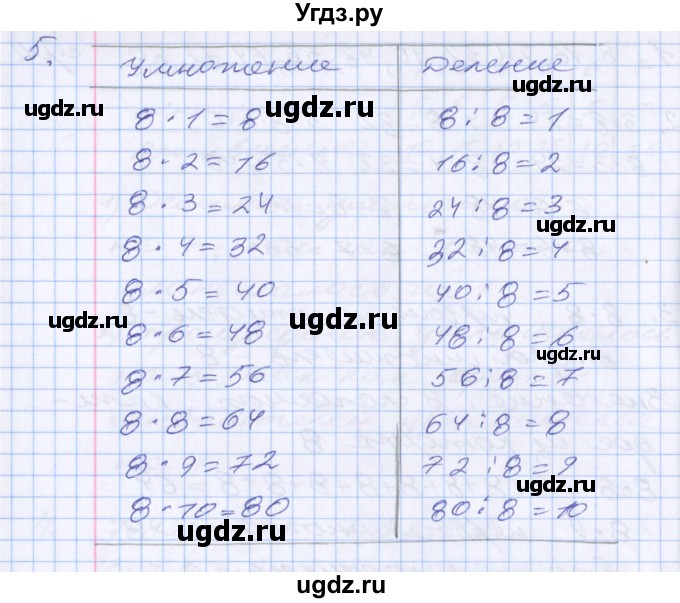 Угдз.ру
5.
Умножение Деление
8 · 1 = 8 8 : 8 = 1
8 · 2 = 16 16 : 8 = 2
8 · 3 = 24 24 : 8 = 3
8 · 4 = 32 32 : 8 = 4
8 · 5 = 40 40 : 8 = 5
8 · 6 = 48 48 : 8 = 6
8 · 7 = 56 56 : 8 = 7
8 · 8 = 64 64 : 8 = 8
8 · 9 = 72 72 : 8 = 9
8 · 10 = 80 80 : 8 = 10
ugdz.ru
ugdz.ru
ugdz.ru
ugdz.ru
ugdz.ru
ugdz.ru
ugdz.ru
ugdz.ru
ugdz.ru
ugdz.ru
ugdz.ru
ugdz.ru
ugdz.ru